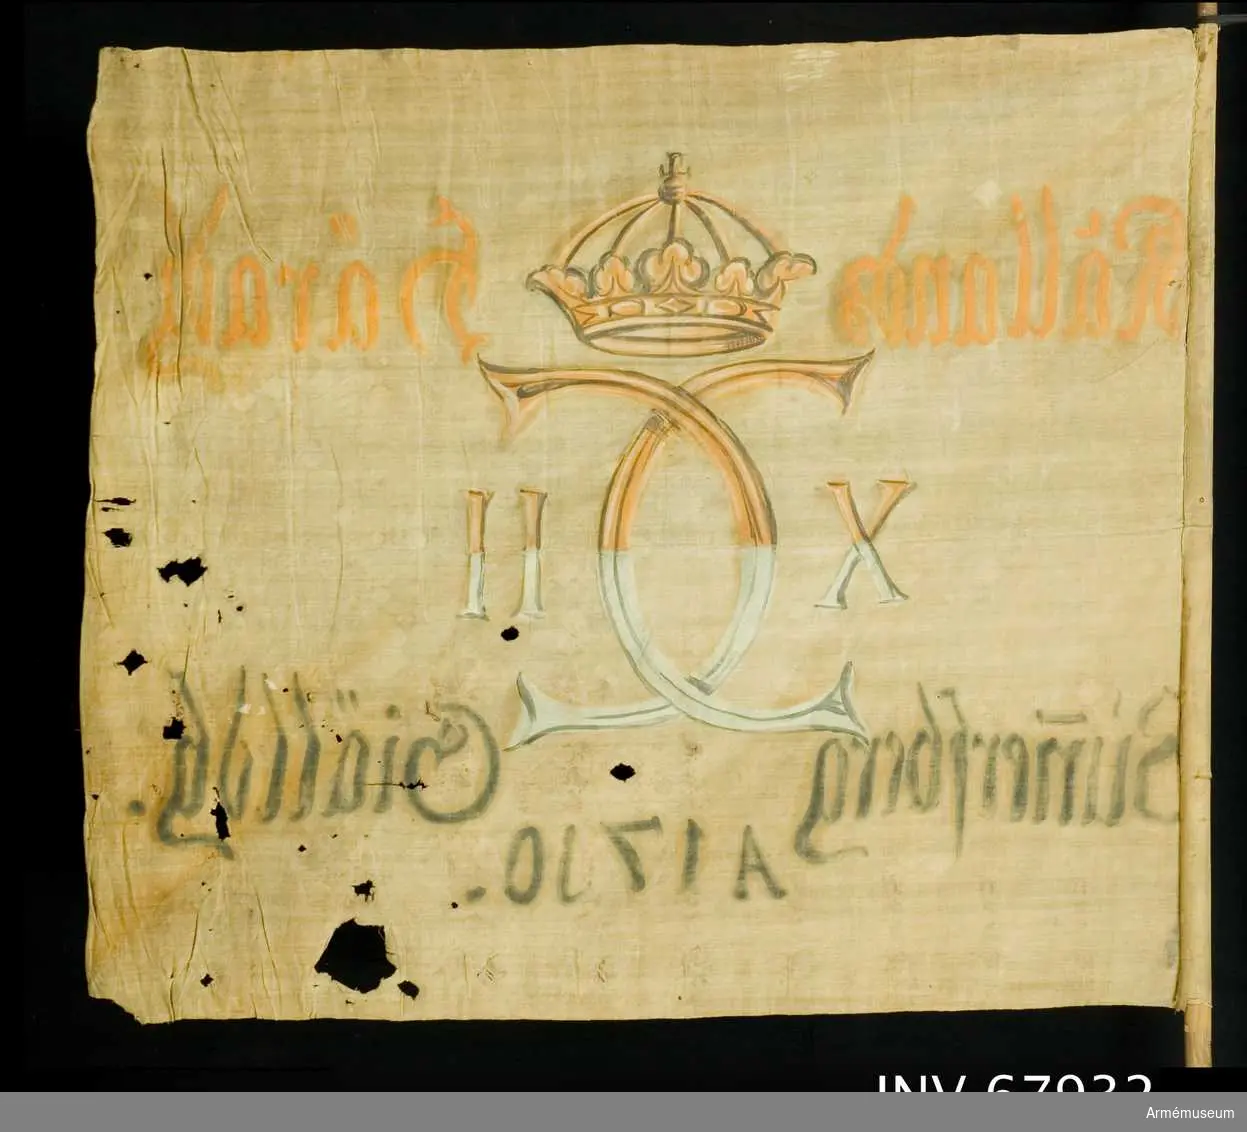 Kållands Härads
X II
Sümersberg Giälldsg.
A 1710.
INV 67932
Armémuseum